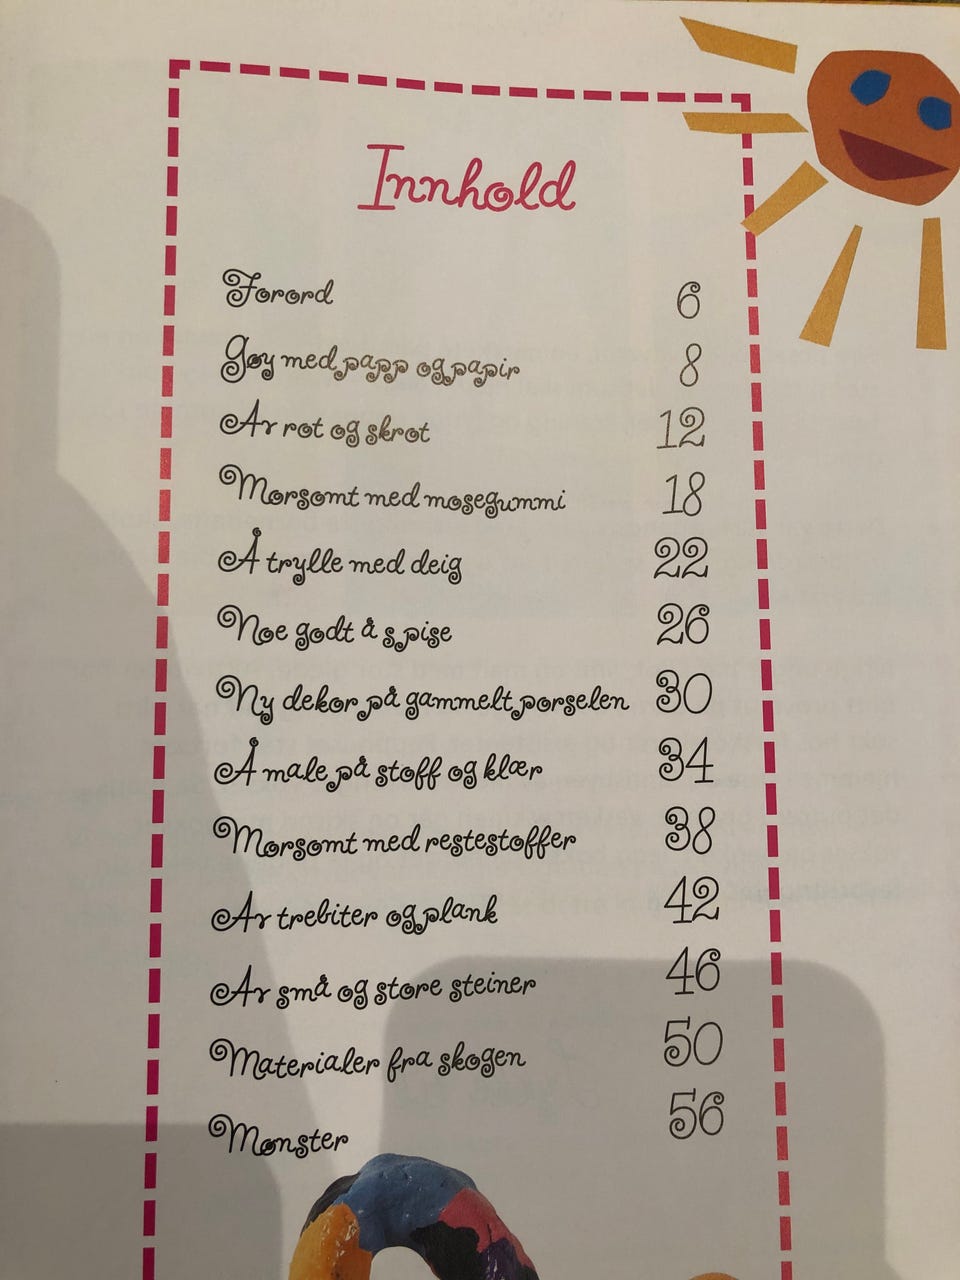 Innhold
Forord 6
Gøy med papp og papir 8
Av rot og skrot 12
Morsomt med mosegummi 18
Å trylle med deig 22
Noe godt å spise 26
Ny dekor på gammelt porselen 30
Å male på stoff og klær 34
Morsomt med restestoffer 38
Av trebiter og plank 42
Av små og store steiner 46
Materialer fra skogen 50
Mønster 56